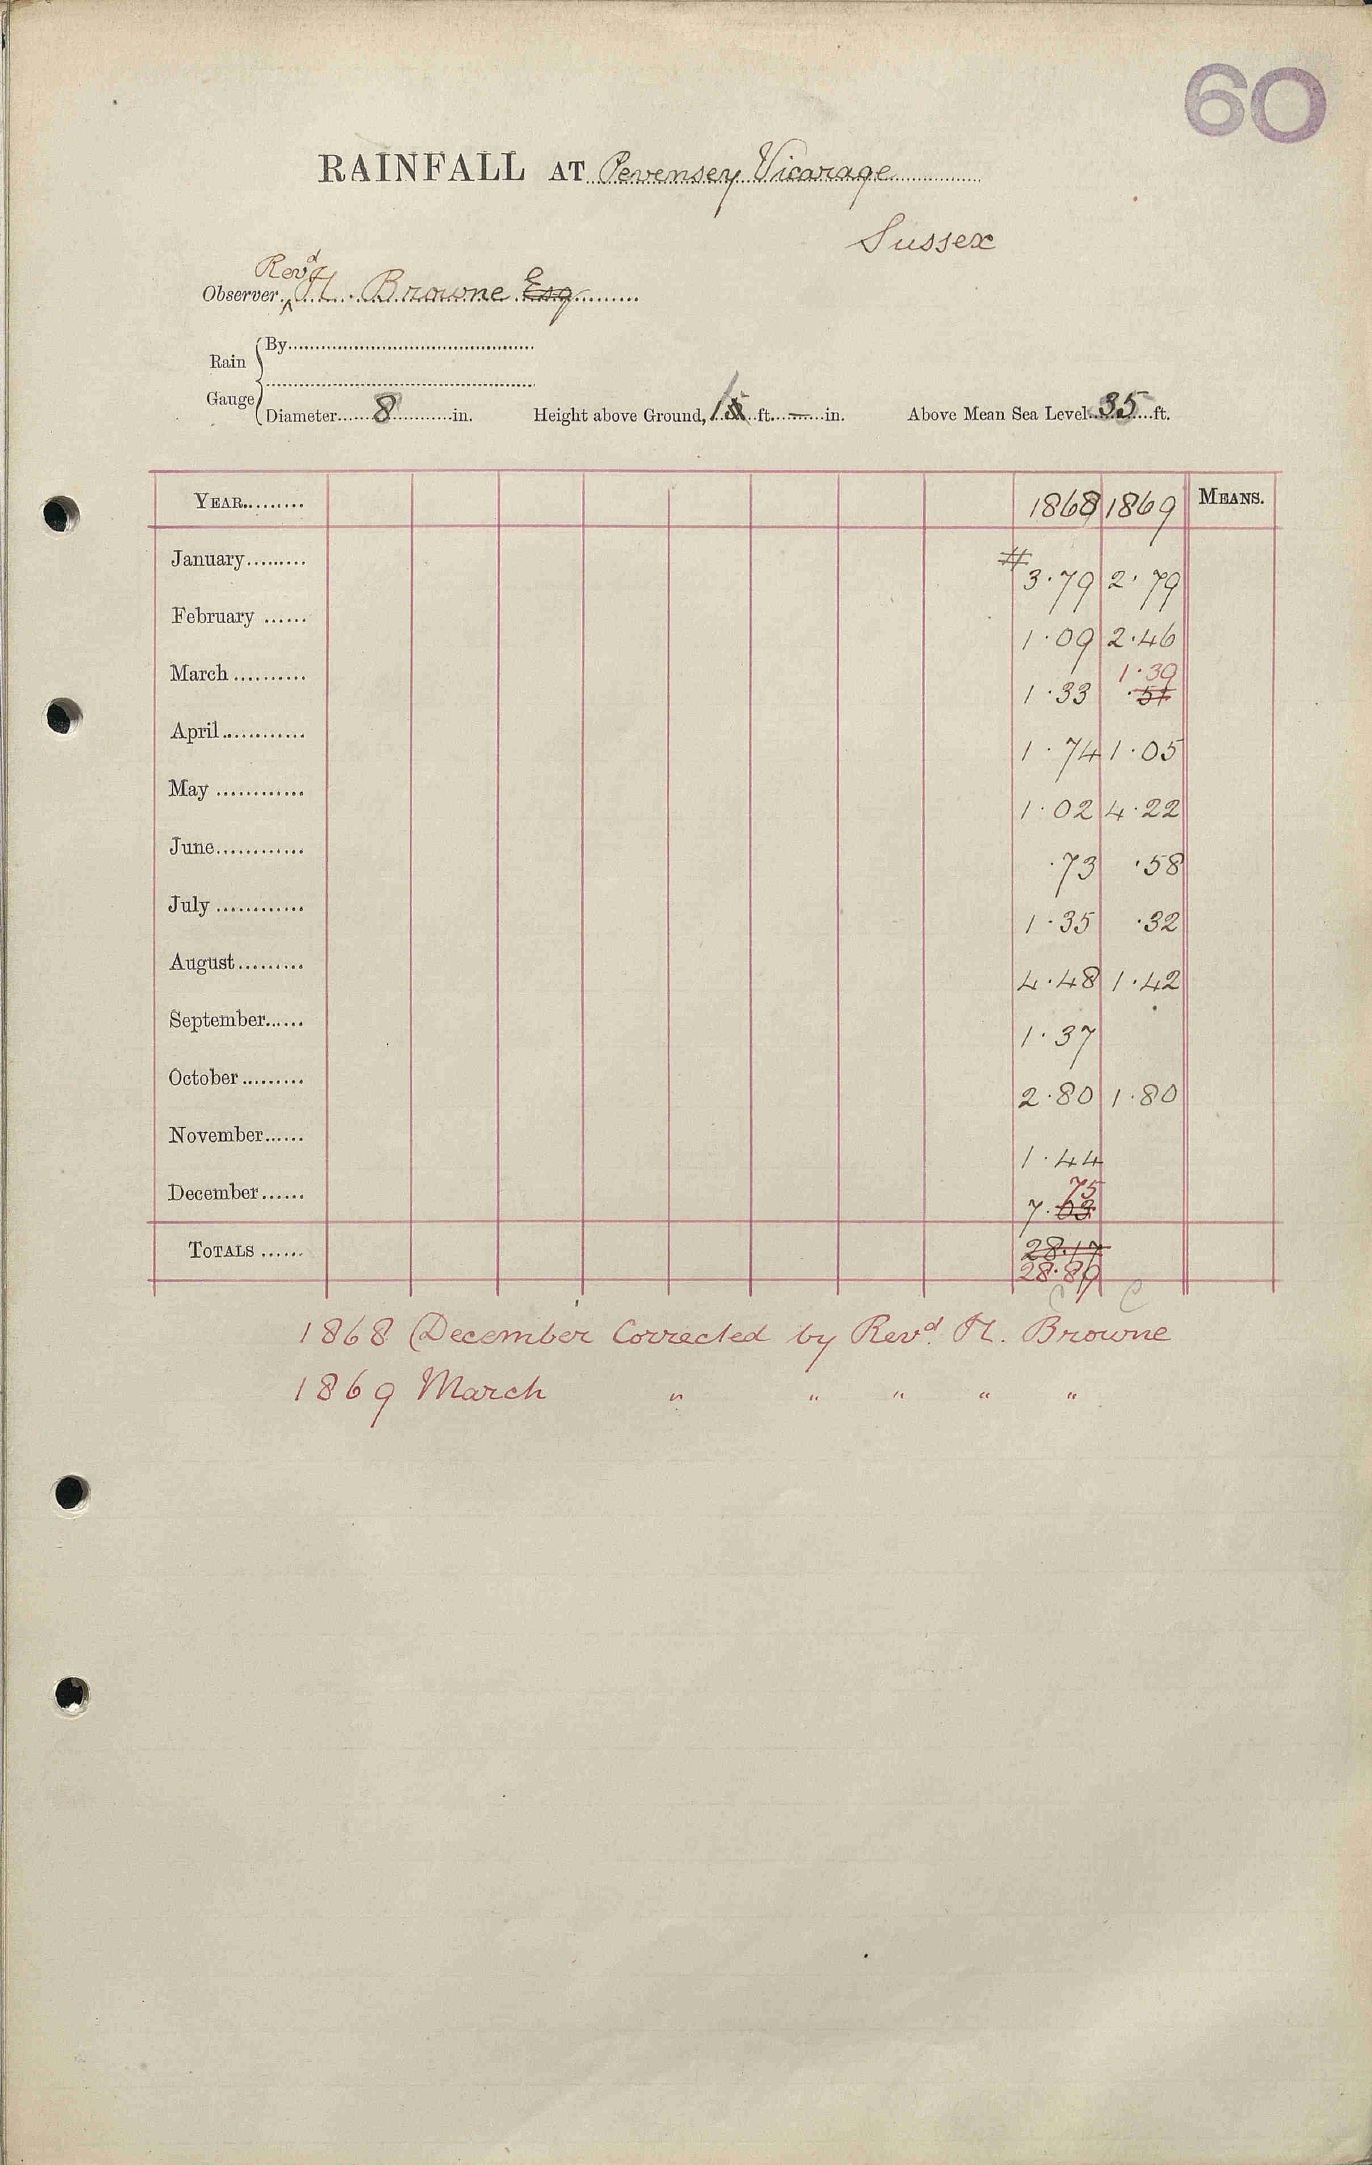 60
RAINFALL AT Pevensey Vicarage
Sussex
Revd
Observer H. Browne Esq
Rain Gauge
By
Diameter 8 in. Height above Ground, 1 ft. — in. Above Mean Sea Level 35 ft.
YEAR 1868 1869 MEANS.
January # 3.79 2.79
February 1.09 2.46
1.39
March 1.33 .51
April 1.74 1.05
May 1.02 4.22
June .73 .58
July 1.35 .32
August 4.48 1.42
September 1.37
October 2.80 1.80
November 1.44
75
December 7.03
TOTALS 28.17
28.89
C C
1868 December Corrected by Revd. H. Browne
1869 March " " " " "